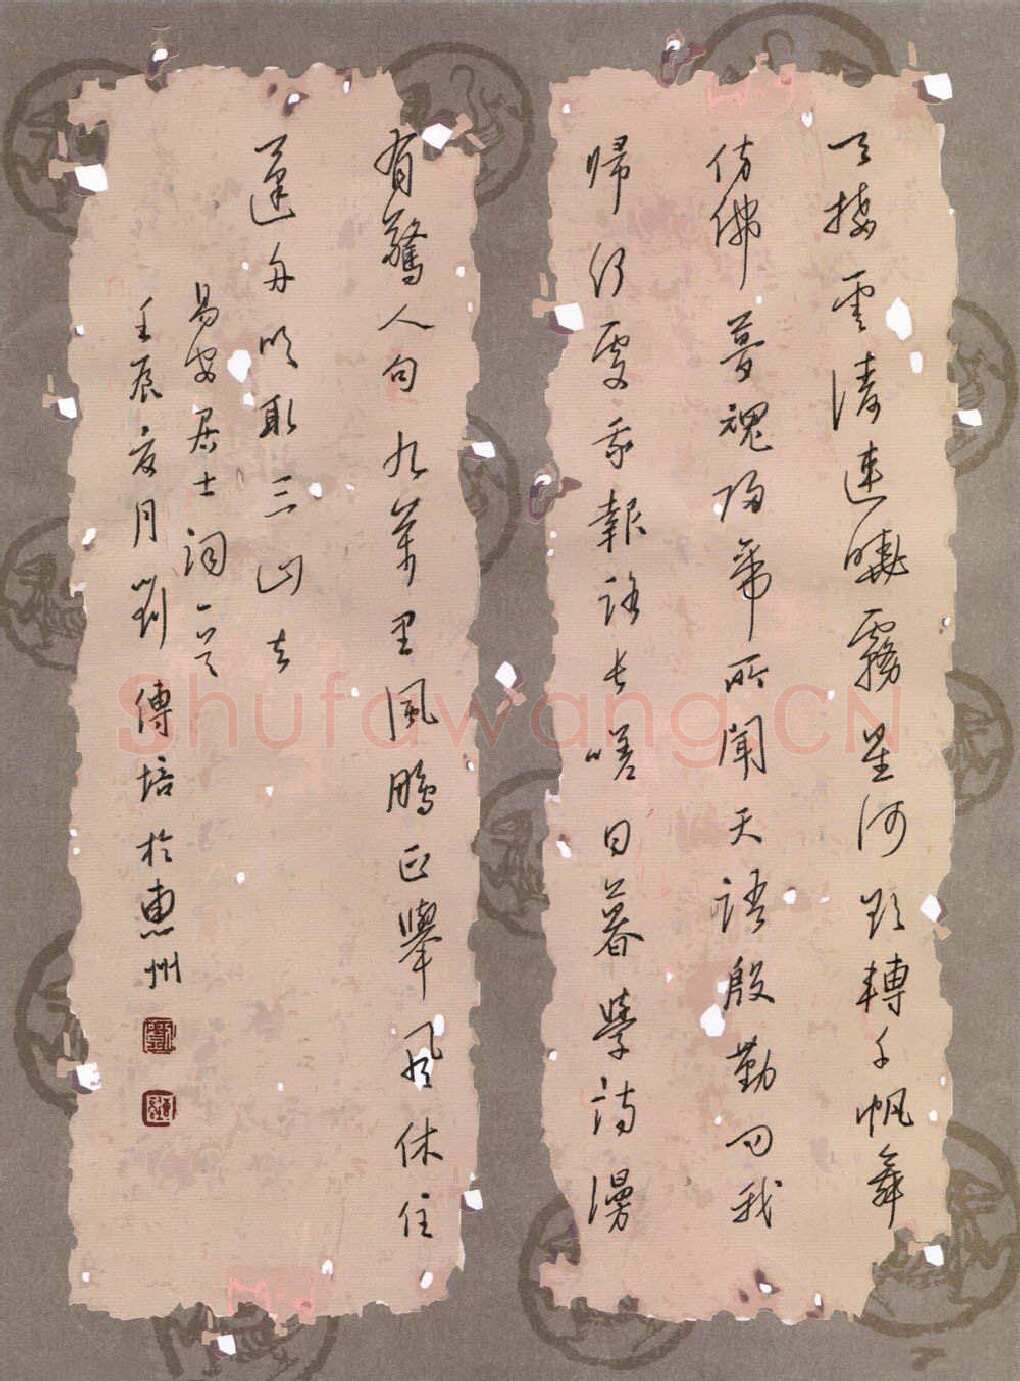 天接雲濤連曉霧星河欲轉千帆舞
仿佛夢魂歸帝所聞天語殷勤問我
歸何處我報路長嗟日暮學詩漫
有驚人句九萬里風鵬正舉風休住
蓬舟吹取三山去
易安居士詞一首
壬辰夏月劉傳培於惠州
Shufawang.CN